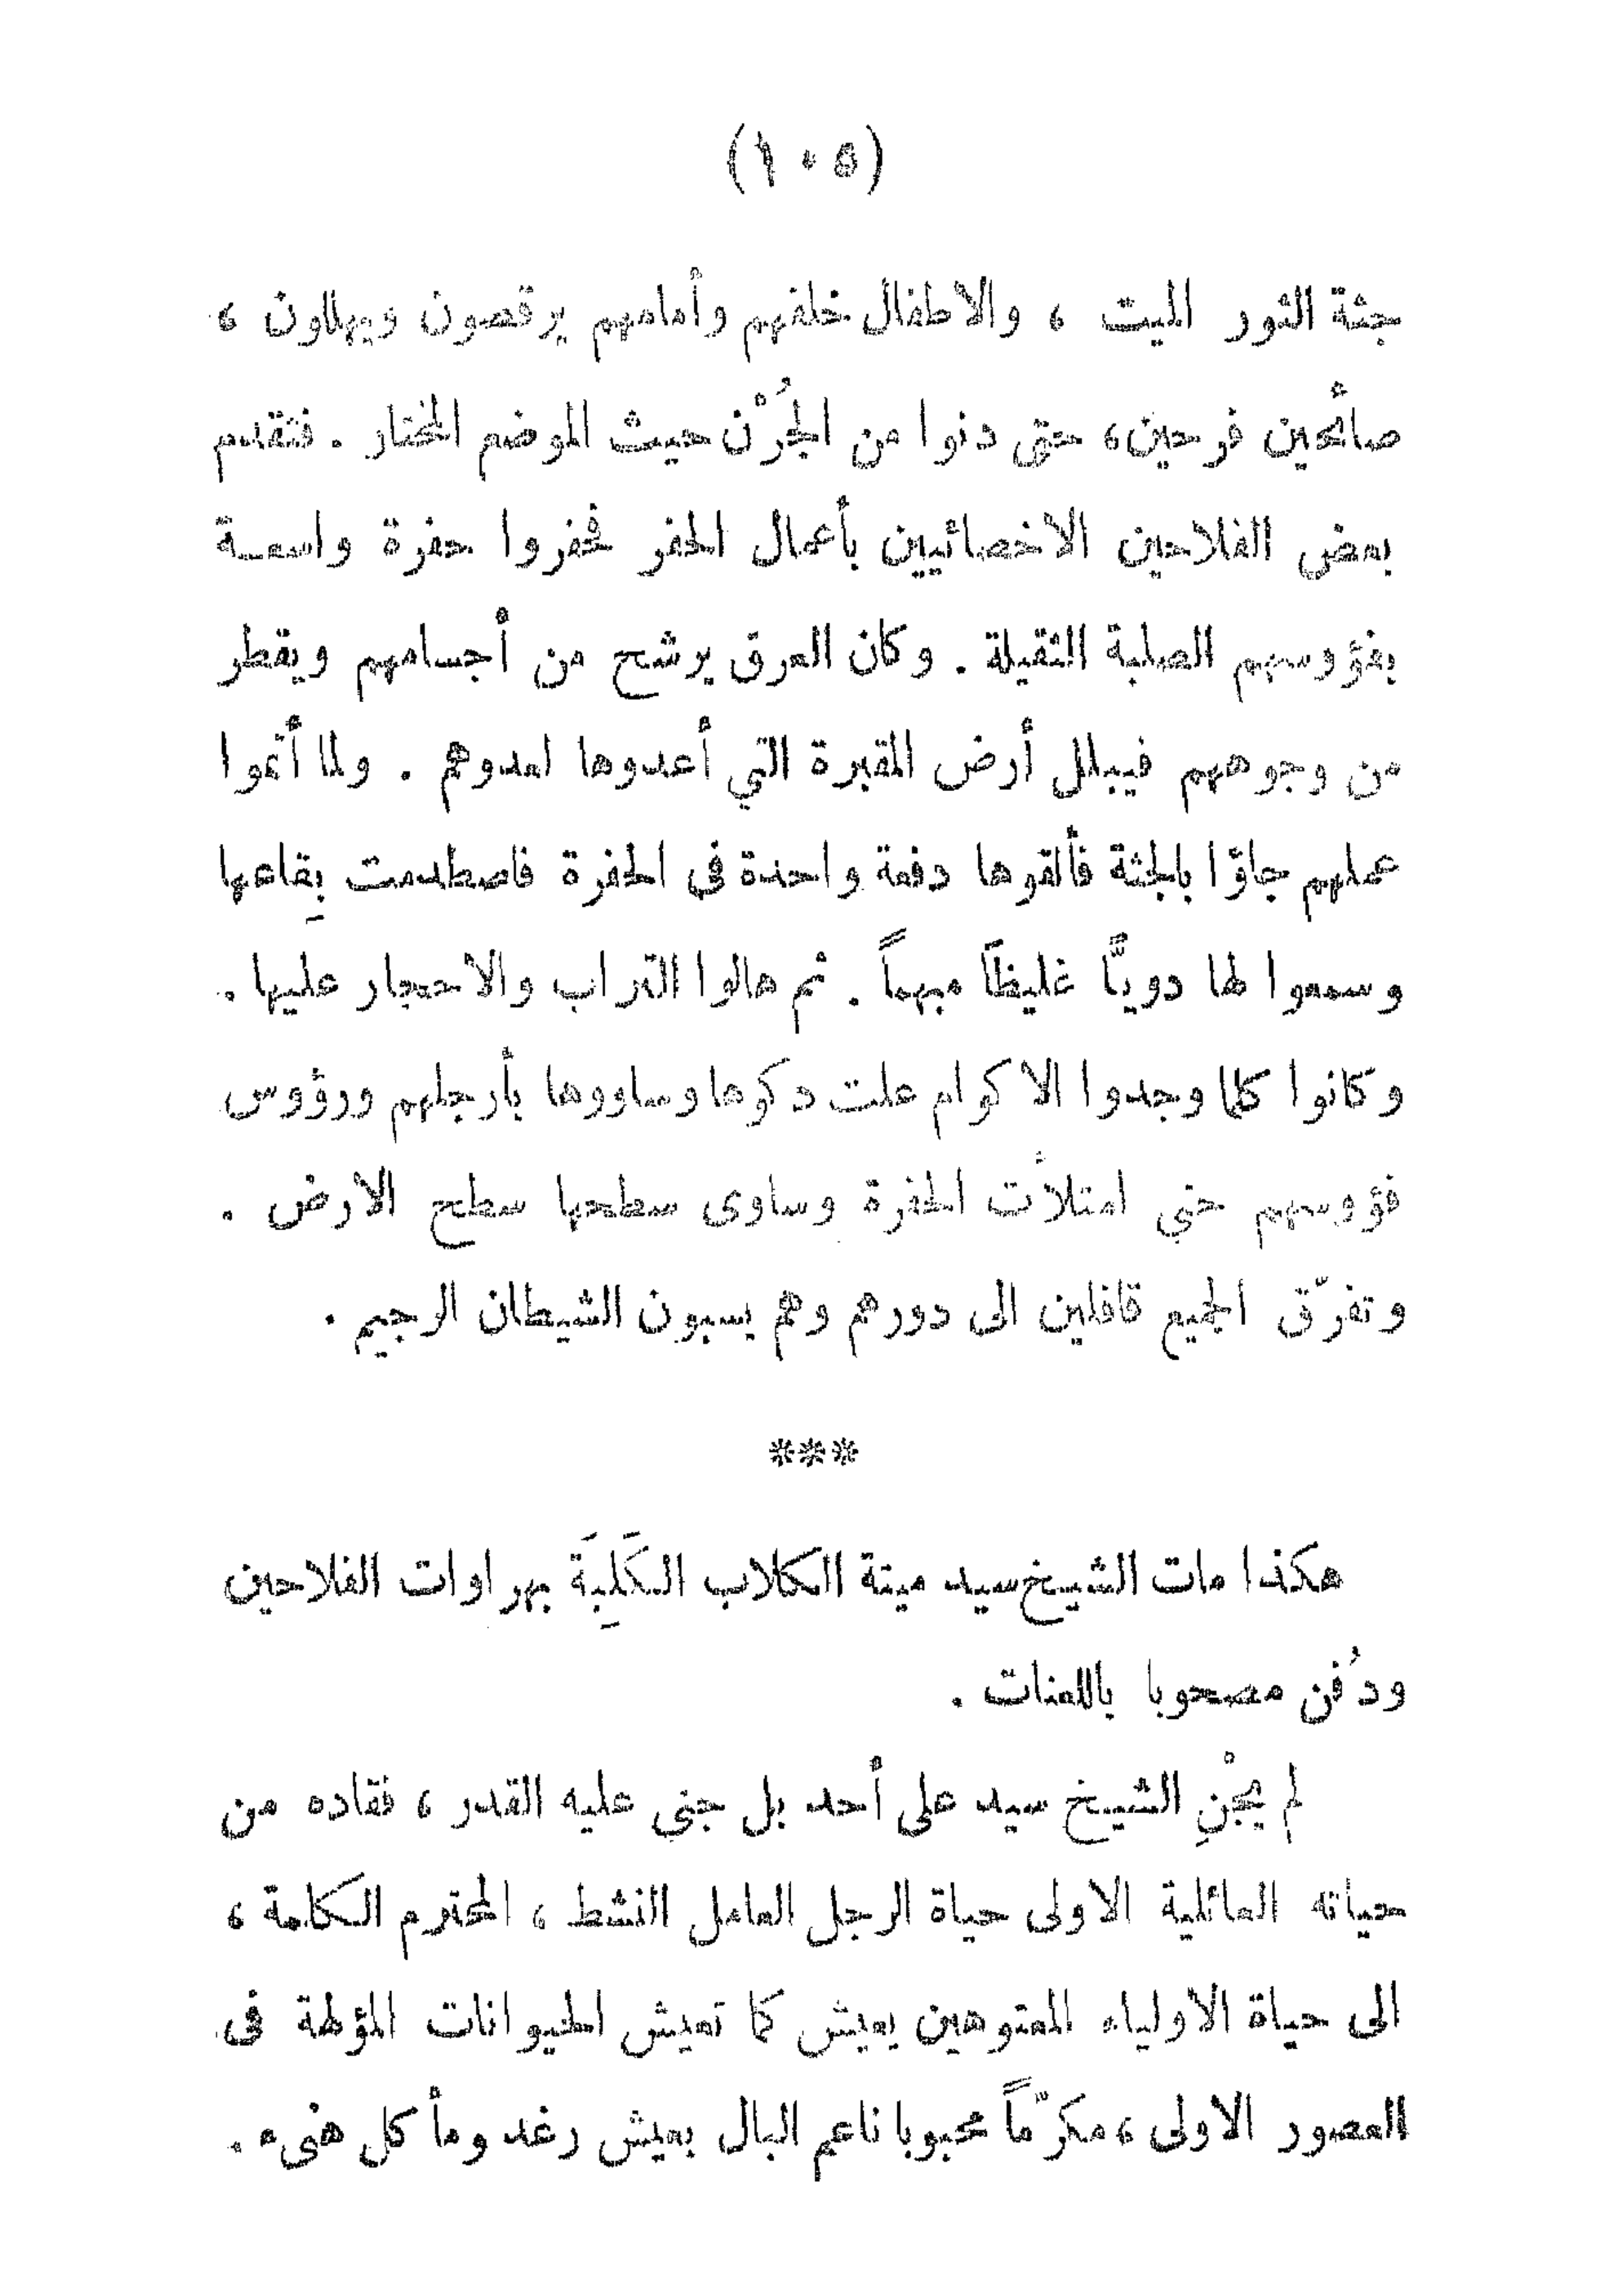 (١٠٥)
جثة الثور الميت ، والاطفال خلفهم وأمامهم يرقصون ويهللون ،
صائحين فرحين، حتى دنوا من الجُرْن حيث الموضع المختار . فتقدم
بعض الفلاحين الاخصائيين بأعمال الحفر فحفروا حفرة واسعـة
بفؤوسهم الصلبة الثقيلة . وكان العرق يرشح من أجسامهم ويقطر
من وجوههم فيبلل أرض المقبرة التي أعدوها لعدوهم . ولما أتموا
عملهم جاؤا بالجثة فألقوها دفعة واحدة فى الحفرة فاصطدمت بِقاعها
وسمعوا لها دويًّا غليظاً مبهماً . ثم هالوا التراب والاحجار عليها .
وكانوا كلما وجدوا الاكوام علت دكوها وساووها بأرجلهم ورؤوس
فؤوسهم حتى امتلأت الحفرة وساوى سطحها سطح الارض .
وتفرّق الجميع قافلين الى دورهم وهم يسبون الشيطان الرجيم .
***
هكذا مات الشيخ سيد ميتة الكلاب الكَلِبَة بهراوات الفلاحين
ودُفن مصحوبا باللعنات .
لم يجْنِ الشيخ سيد على أحد بل جنى عليه القدر ، فقاده من
حياته العائلية الاولى حياة الرجل العامل النشط ، المحترم الكلمة ،
الى حياة الاولياء المعتوهين يعيش كما تعيش الحيوانات المؤلهة فى
العصور الاولى ، مكرّماً محبوبا ناعم البال بعيش رغد ومأكل هنىء .